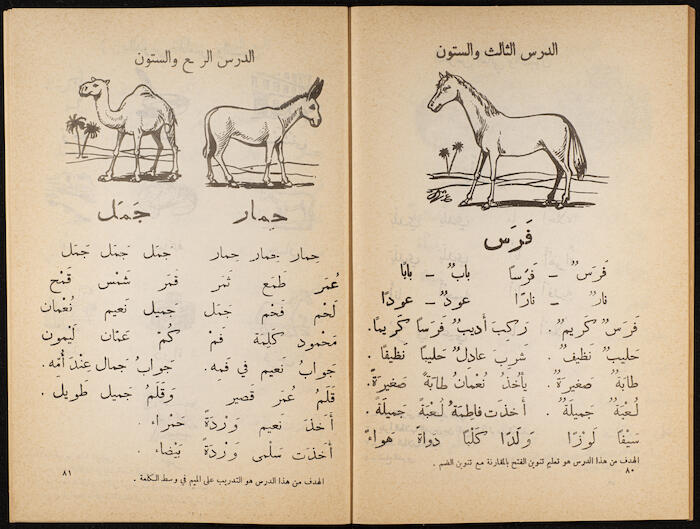 الدرس الثالث والستون
فَرَس
فَرَسٌ – فَرَسًا بابٌ – بابًا
نارٌ – نارًا عودٌ – عودًا
فَرَسٌ كَريمٌ . رَكِبَ أَديبٌ فَرَسًا كَريمًا .
حَليبٌ نَظيفٌ . شَرِبَ عادِلٌ حَليبًا نَظيفًا .
طابَةٌ صَغيرَةٌ . يأخُذُ نُعمانُ طابَةً صَغيرَةً .
لُعبَةٌ جَميلَةٌ . أَخَذَت فاطِمَةُ لُعبَةً جَميلَةً .
سَيْفًا لَوْزًا وَلَدًا كَلْبًا دَواةً هَواءً
الهدف من هذا الدرس هو تعليم تنوين الفتح بالمقارنة مع تنوين الضم .
٨٠
الدرس الرابع والستون
حِمار جَمَل
حِمار حِمار حِمار جَمَل جَمَل جَمَل
عُمَر طَمَع ثَمَر قَمَر شَمْس قَمْح
لَحْم فَحْم جَمَل جَميل نَعيم نُعْمان
مَحْمود كَلِمَة فَمْ كَمْ عَمّان لَيْمون
جَوابُ نَعيم في فَمِهِ . جَوابُ جَمال عِنْدَ أُمِّهِ .
قَلَمُ عُمَر قَصير وَقَلَمُ جَميل طَويل .
أَخَذَ نَعيم وَرْدَةً حَمْراء .
أَخَذَت سَلْمى وَرْدَةً بَيْضاء .
الهدف من هذا الدرس هو التدريب على الميم في وسط الكلمة .
٨١